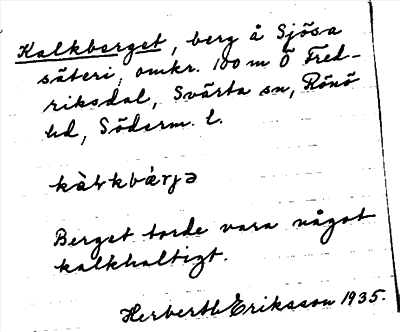 Kalkberget, berg å Sjösa
säteri, omkr. 100 m Ö Fred-
riksdal, Svärta sn, Rönö
hd, Söderm. l.
Berget torde vara något
kalkhaltigt.
Herberth Eriksson 1935.